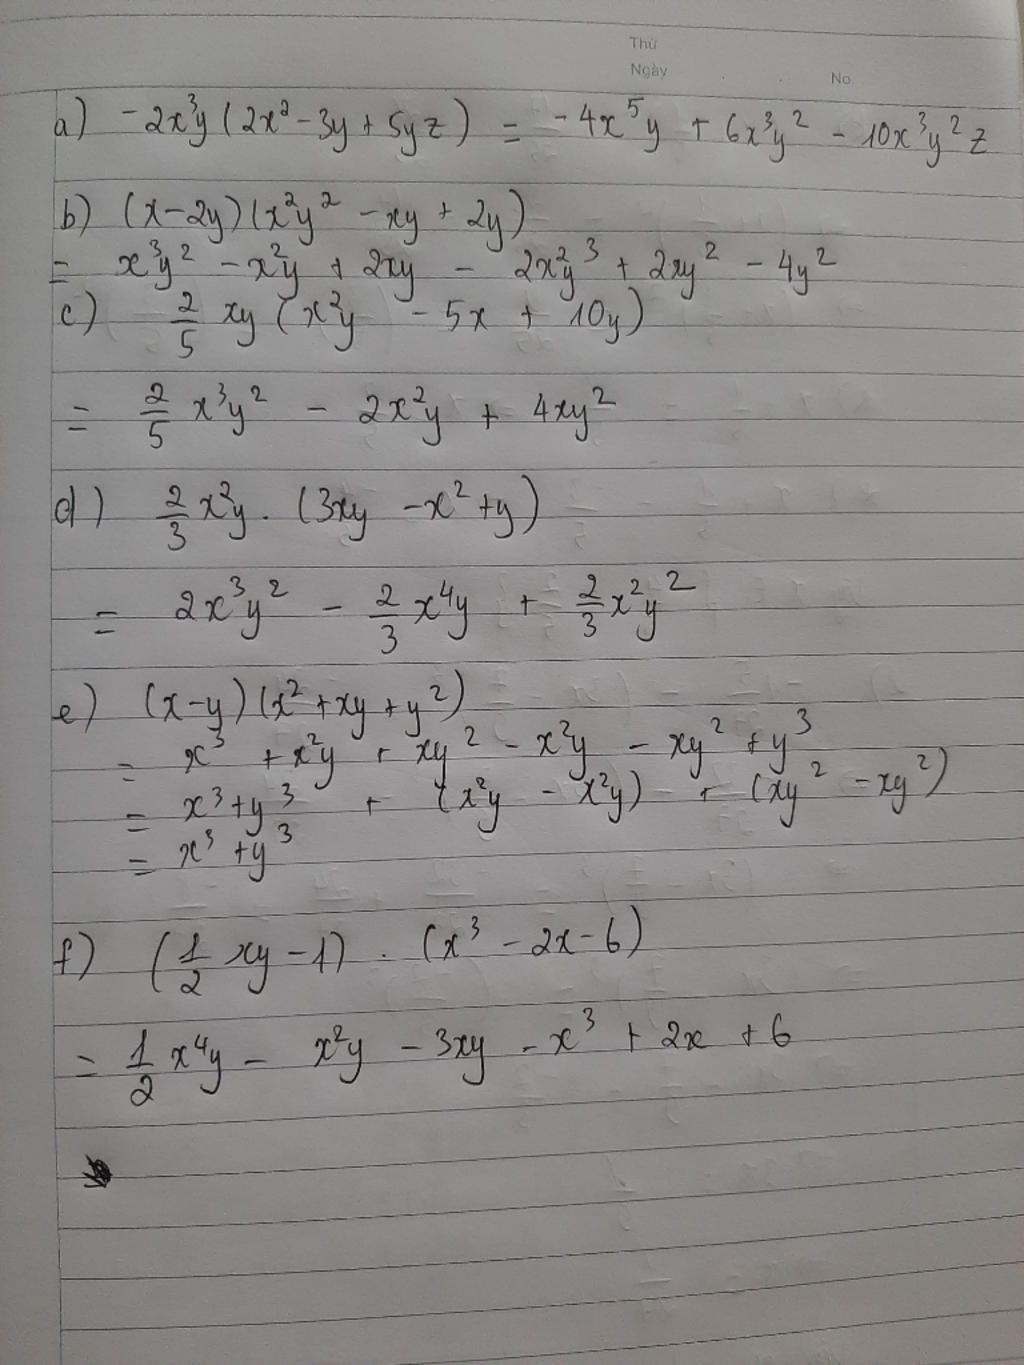 Thứ
Ngày . . No
a) -2x³y (2x² - 3y + 5yz) = -4x⁵y + 6x³y² - 10x³y²z
b) (x-2y)(x²y² - xy + 2y)
= x³y² - x²y + 2xy - 2x²y³ + 2xy² - 4y²
c) 2/5 xy (x²y - 5x + 10y)
= 2/5 x³y² - 2x²y + 4xy²
d) 2/3 x²y . (3xy - x² + y)
= 2x³y² - 2/3 x⁴y + 2/3 x²y²
e) (x-y)(x² + xy + y²)
= x³ + x²y + xy² - x²y - xy² + y³
= x³ + y³ + (x²y - x²y) + (xy² - xy²)
= x³ + y³
f) (1/2 xy - 1) . (x³ - 2x - 6)
= 1/2 x⁴y - x²y - 3xy - x³ + 2x + 6